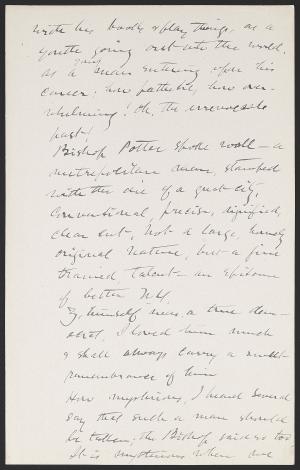 with his books & play things, as a
youth going out into the world,
as a young man entering upon his
career; how pathetic, how over-
whelming! Oh, the irrevocable
past!
Bishop Potter spoke well — a
metropolitan man, stamped
with the die of a great city,
conventional, precise, dignified,
clear cut, not a large, homely
original nature, but a fine
trained talent — an epitome
of better N.Y.
himself was a true dem-
ocrat, I loved him much
& shall always carry a sweet
remembrance of him
How mysterious, I heard several
say that such a man should
be taken; the Bishop said so too
It is mysterious when we